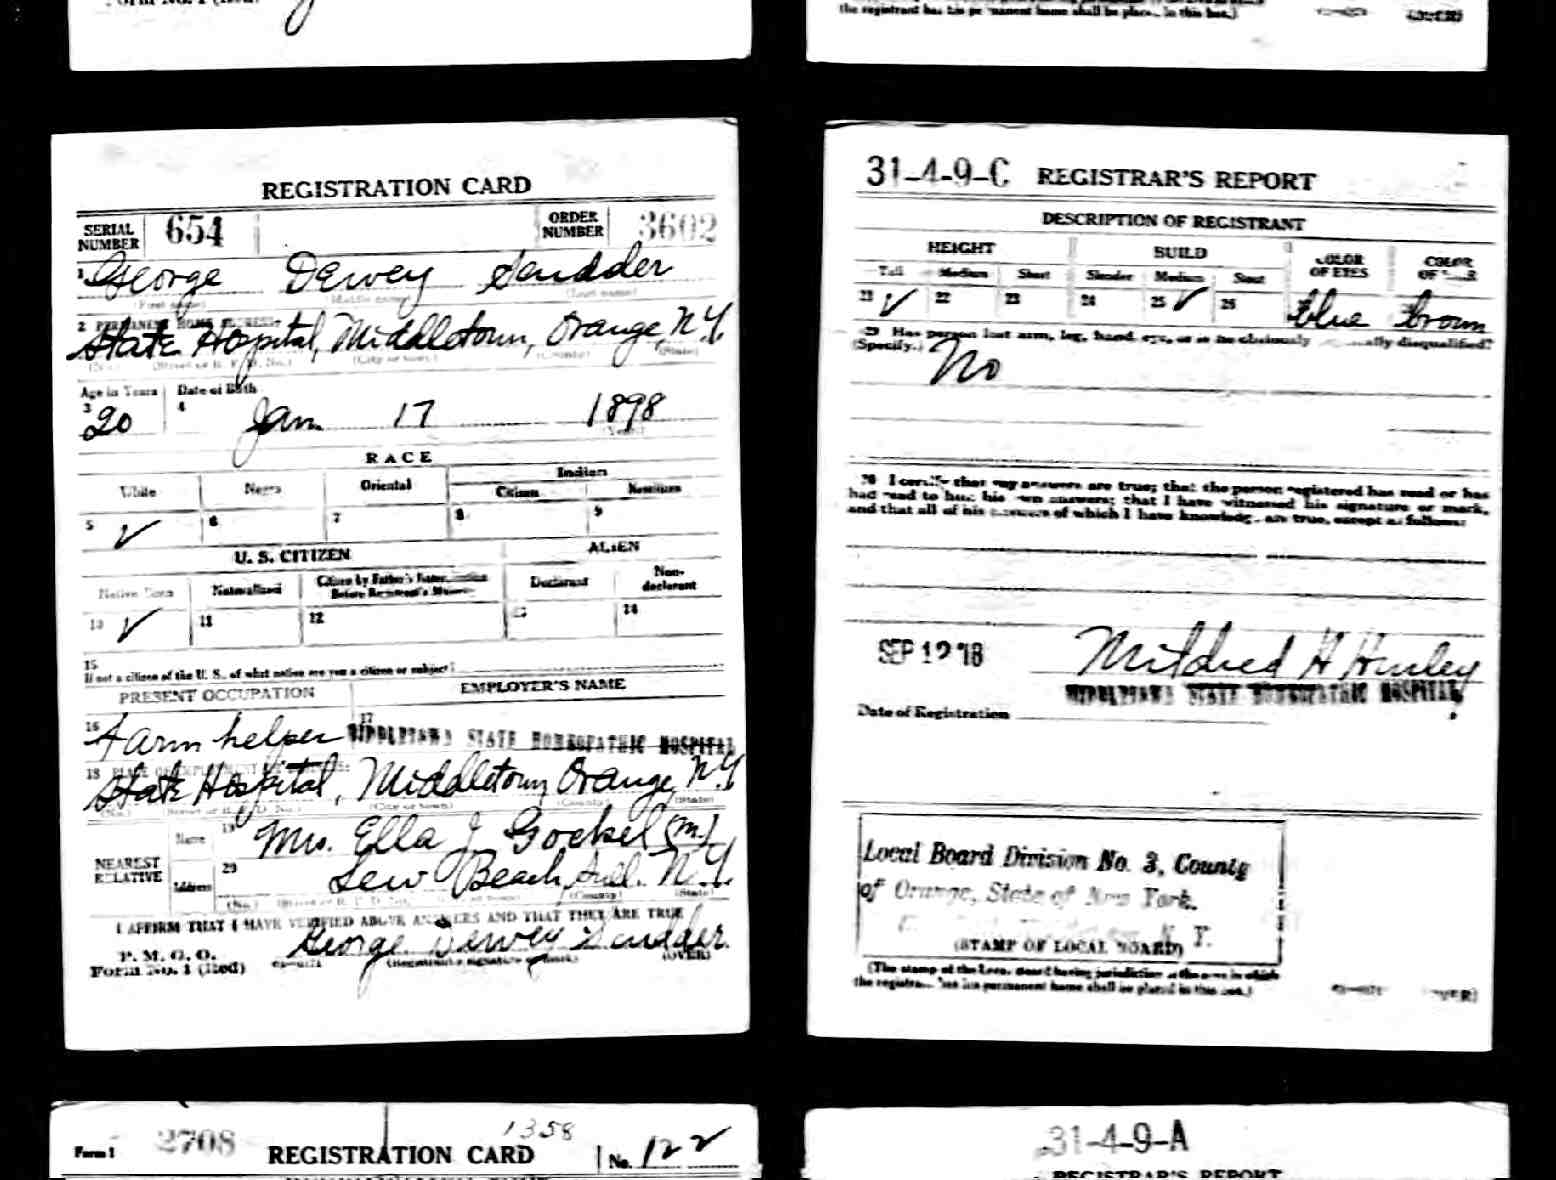 the registrant has his permanent home shall be placed in this box.)
REGISTRATION CARD
SERIAL NUMBER 654 ORDER NUMBER 3602
1 George Dewey Scudder
(First name) (Middle name) (Last name)
2 PERMANENT HOME ADDRESS:
State Hospital, Middletown, Orange, N.Y.
(No.) (Street or R. F. D. No.) (City or town) (County) (State)
Age in Years Date of Birth
3 20 4 Jan. 17 1898
(Year)
RACE
White Negro Oriental Indian
Citizen Noncitizen
5 ✓ 6 7 8 9
U. S. CITIZEN ALIEN
Native Born Naturalized Citizen by Father's Naturalization Before Registrant's Majority Declarant Non-declarant
10 ✓ 11 12 13 14
15
If not a citizen of the U. S., of what nation are you a citizen or subject?
PRESENT OCCUPATION EMPLOYER'S NAME
16 Farm helper 17 MIDDLETOWN STATE HOMEOPATHIC HOSPITAL
18 PLACE OF EMPLOYMENT OR BUSINESS:
State Hospital, Middletown Orange N.Y.
(No.) (Street or R. F. D. No.) (City or town) (County) (State)
NEAREST RELATIVE
Name 19 Mrs. Ella J Gockel (M.)
Address 20 Lew Beach, Sull. N.Y.
(No.) (Street or R. F. D. No.) (City or town) (County) (State)
I AFFIRM THAT I HAVE VERIFIED ABOVE ANSWERS AND THAT THEY ARE TRUE
P. M. G. O.
Form No. 1 (Red) George Dewey Scudder
(Registrant's signature or mark) (OVER)
31-4-9-C REGISTRAR'S REPORT
DESCRIPTION OF REGISTRANT
HEIGHT BUILD COLOR OF EYES COLOR OF HAIR
Tall Medium Short Slender Medium Stout
21 ✓ 22 23 24 25 ✓ 26 blue brown
29 Has person lost arm, leg, hand, eye, or is he obviously physically disqualified?
(Specify.) No
30 I certify that my answers are true; that the person registered has read or has
had read to him his own answers; that I have witnessed his signature or mark,
and that all of his answers of which I have knowledge are true, except as follows:
SEP 12 '18 Mildred H Hurley
MIDDLETOWN STATE HOMEOPATHIC HOSPITAL
Date of Registration
Local Board Division No. 3, County
of Orange, State of New York.
N. Y.
(STAMP OF LOCAL BOARD)
(The stamp of the Local Board having jurisdiction of the area in which
the registrant has his permanent home shall be placed in this box.)
(OVER)
Form 1 2708 REGISTRATION CARD 1358 No. 122
31-4-9-A
REGISTRAR'S REPORT